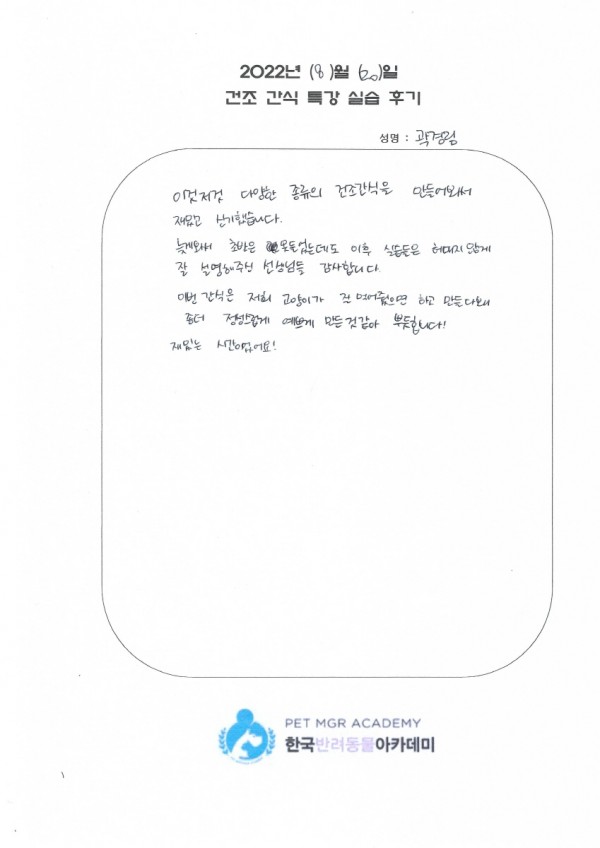 2022년 (8)월 (20)일
건조 간식 특강 실습 후기
성명 : 곽경림
이것저것 다양한 종류의 건조간식을 만들어봐서
재밌고 신기했습니다.
늦게와서 초반은 못들었는데도 이후 실습들은 헤매지않게
잘 설명해주신 선생님들 감사합니다.
이번 간식은 저희 고양이가 잘 먹어줬으면 하고 만들다보니
좀더 정성스럽게 예쁘게 만든것같아 뿌듯합니다!
재밌는 시간이었어요!
PET MGR ACADEMY
한국반려동물아카데미